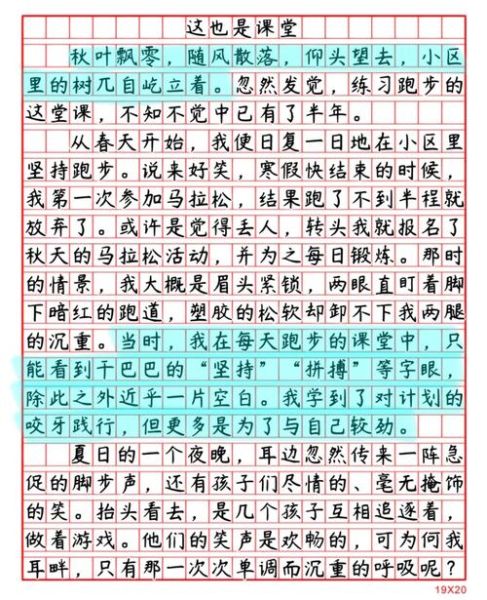 这也是课堂
秋叶飘零，随风散落，仰头望去，小区
里的树兀自屹立着。忽然发觉，练习跑步的
这堂课，不知不觉中已有了半年。
从春天开始，我便日复一日地在小区里
坚持跑步。说来好笑，寒假快结束的时候，
我第一次参加马拉松，结果跑了不到半程就
放弃了。或许是觉得丢人，转头我就报名了
秋天的马拉松活动，并为之每日锻炼。那时
的情景，我大概是眉头紧锁，两眼直盯着脚
下暗红的跑道，塑胶的松软却卸不下我两腿
的沉重。当时，我在每天跑步的课堂中，只
能看到干巴巴的“坚持”“拼搏”等字眼，
除此之外近乎一片空白。我学到了对计划的
咬牙践行，但更多是为了与自己较劲。
夏日的一个夜晚，耳边忽然传来一阵急
促的脚步声，还有孩子们尽情的、毫无掩饰
的笑。抬头看去，是几个孩子互相追逐着，
做着游戏。他们的笑声是欢畅的，可为何我
耳畔，只有那一次次单调而沉重的呼吸呢？
19X20